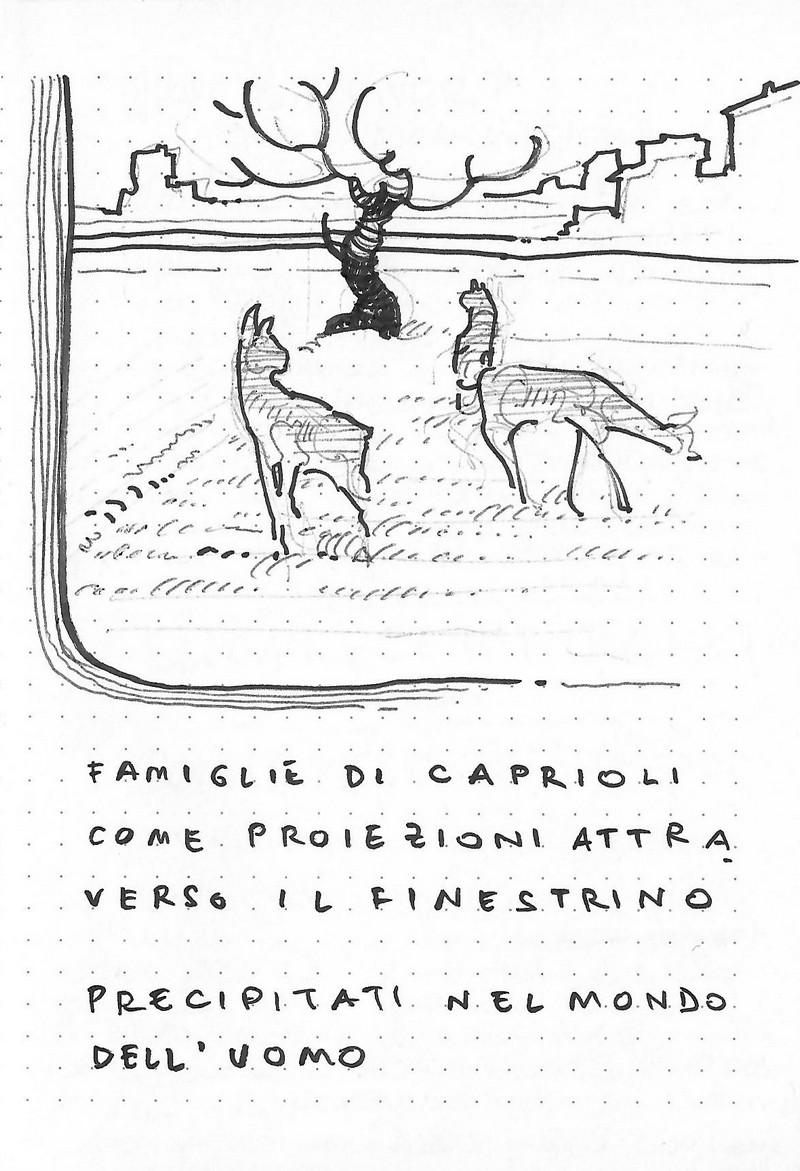 FAMIGLIE DI CAPRIOLI
COME PROIEZIONI ATTRA
VERSO IL FINESTRINO
PRECIPITATI NEL MONDO
DELL'UOMO